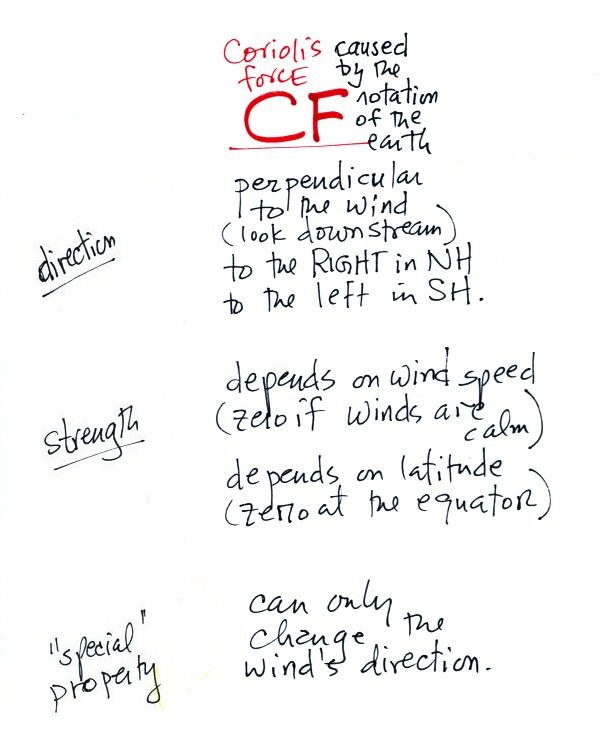 Coriolis caused
force by the
CF rotation
of the
earth
perpendicular
to the wind
(look downstream)
to the RIGHT in NH
to the left in SH.
direction
depends on wind speed
(zero if winds are
calm)
strength
depends on latitude
(zero at the equator)
can only
change the
wind's direction.
"special"
property